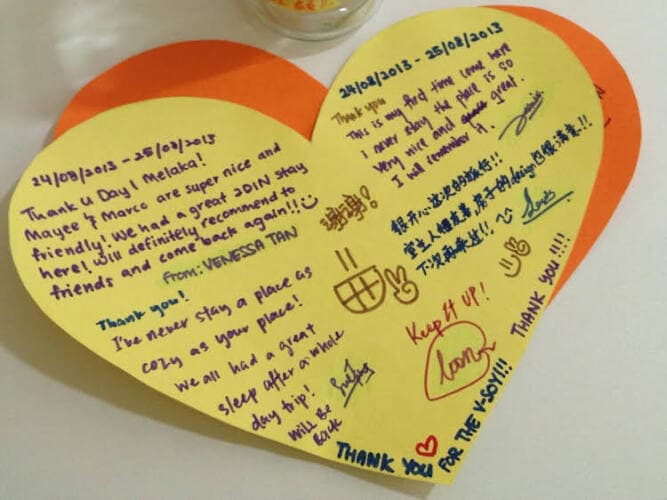 24/08/2013 - 25/08/2013
Thank u Day1 Melaka!
Mayee & Marco are super nice and
friendly! We had a great 2D1N stay
here! Will definitely recommend to
friends and come back again!!
From: VENESSA TAN
Thank you!
I've never stay a place as
cozy as your place!
we all had a great
sleep after a whole
day trip!
will Be
Back
24/08/2013 - 25/08/2013
Thank you
This is my first time come here
I never stay the place is so
very nice and great.
I will remember it
谢谢!
很开心这次的旅行!!
室主人很友善, 房子的design也很满意!!
下次再来过!!
Keep It UP!
THANK YOU FOR THE V-SOY!!!
THANK YOU!!!!